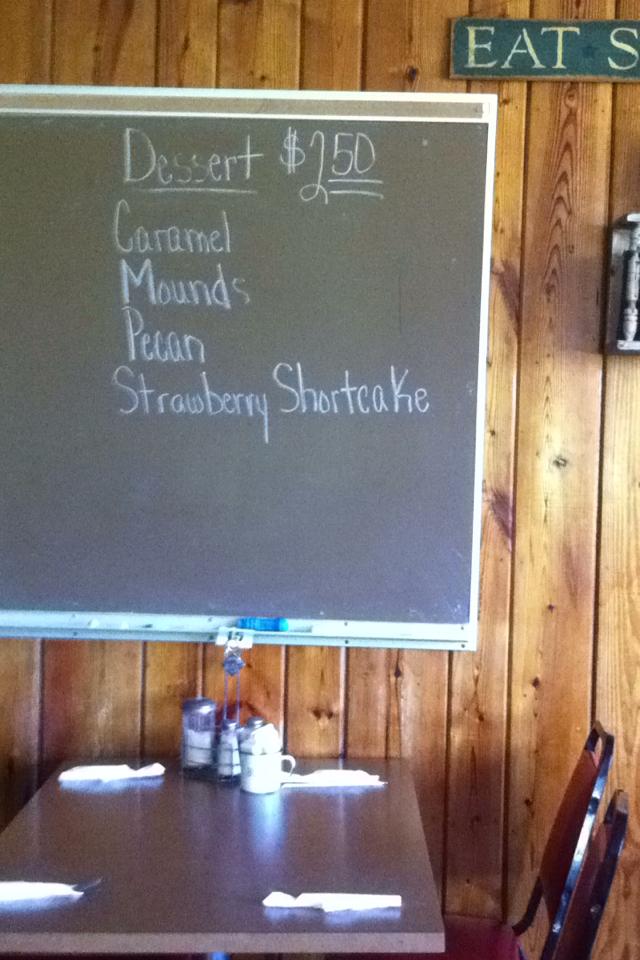 EAT S
Dessert $2.50
Caramel
Mounds
Pecan
Strawberry Shortcake
15